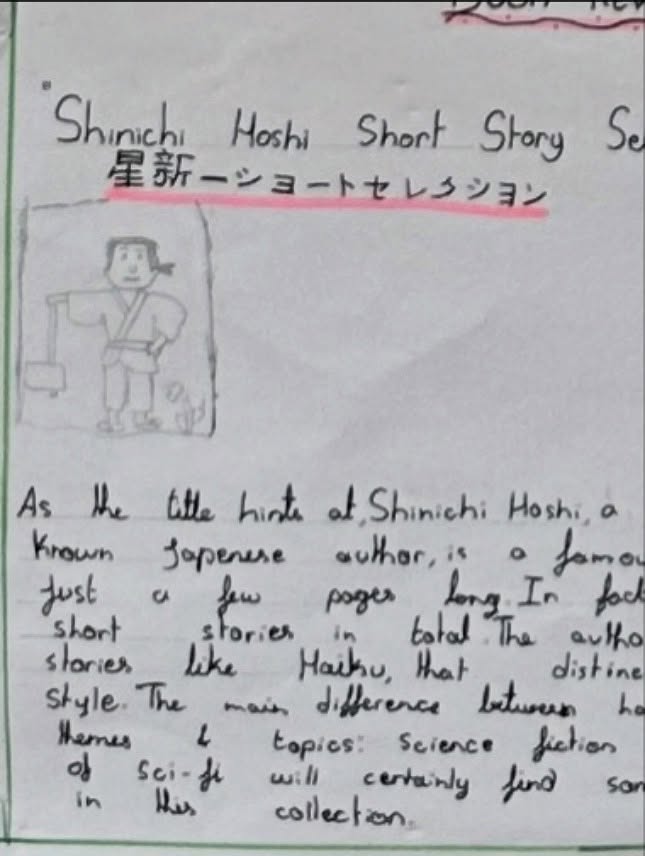 Shinichi Hoshi Short Story Se
星新一ショートセレクション
As the title hints at, Shinichi Hoshi, a
known Japenese author, is a famou
just a few pages long. In fact
short stories in total. The autho
stories like Haiku, that distine
style. The main difference between ha
themes & topics: science fiction
of sci-fi will certainly find som
in this collection.